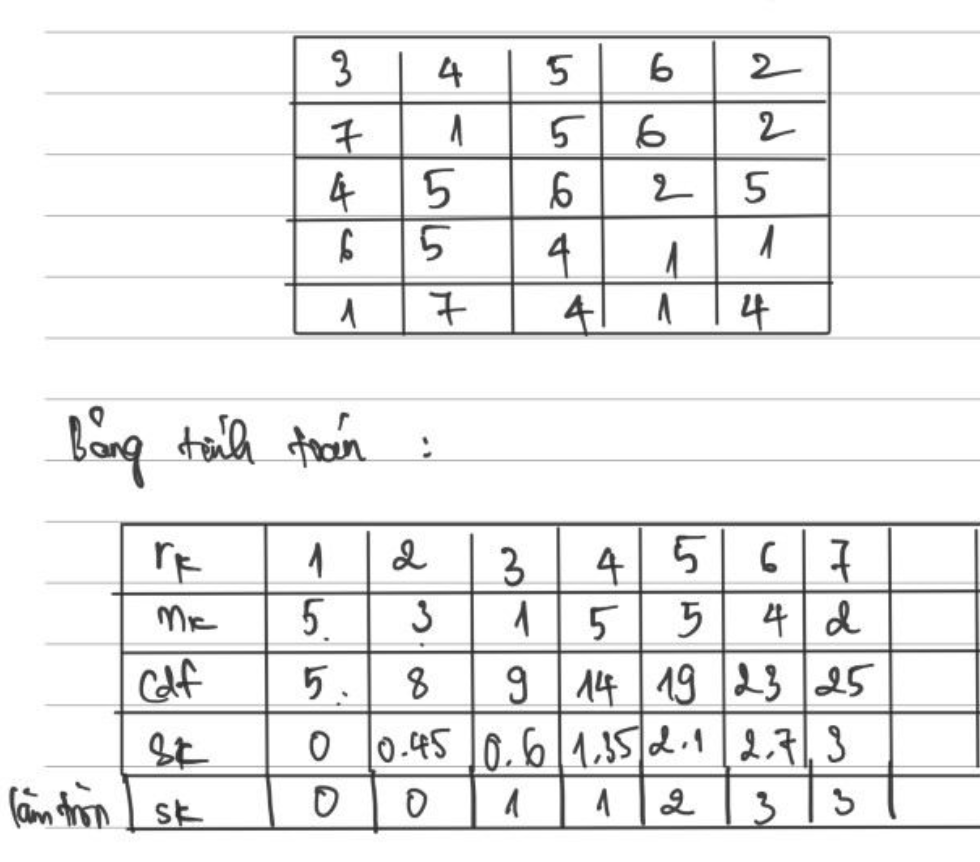 3 4 5 6 2
7 1 5 6 2
4 5 6 2 5
6 5 4 1 1
1 7 4 1 4
Bảng tính toán :
rk 1 2 3 4 5 6 7
nk 5 3 1 5 5 4 2
Cdf 5 8 9 14 19 23 25
Sk 0 0.45 0.6 1.35 2.1 2.7 3
làm tròn sk 0 0 1 1 2 3 3